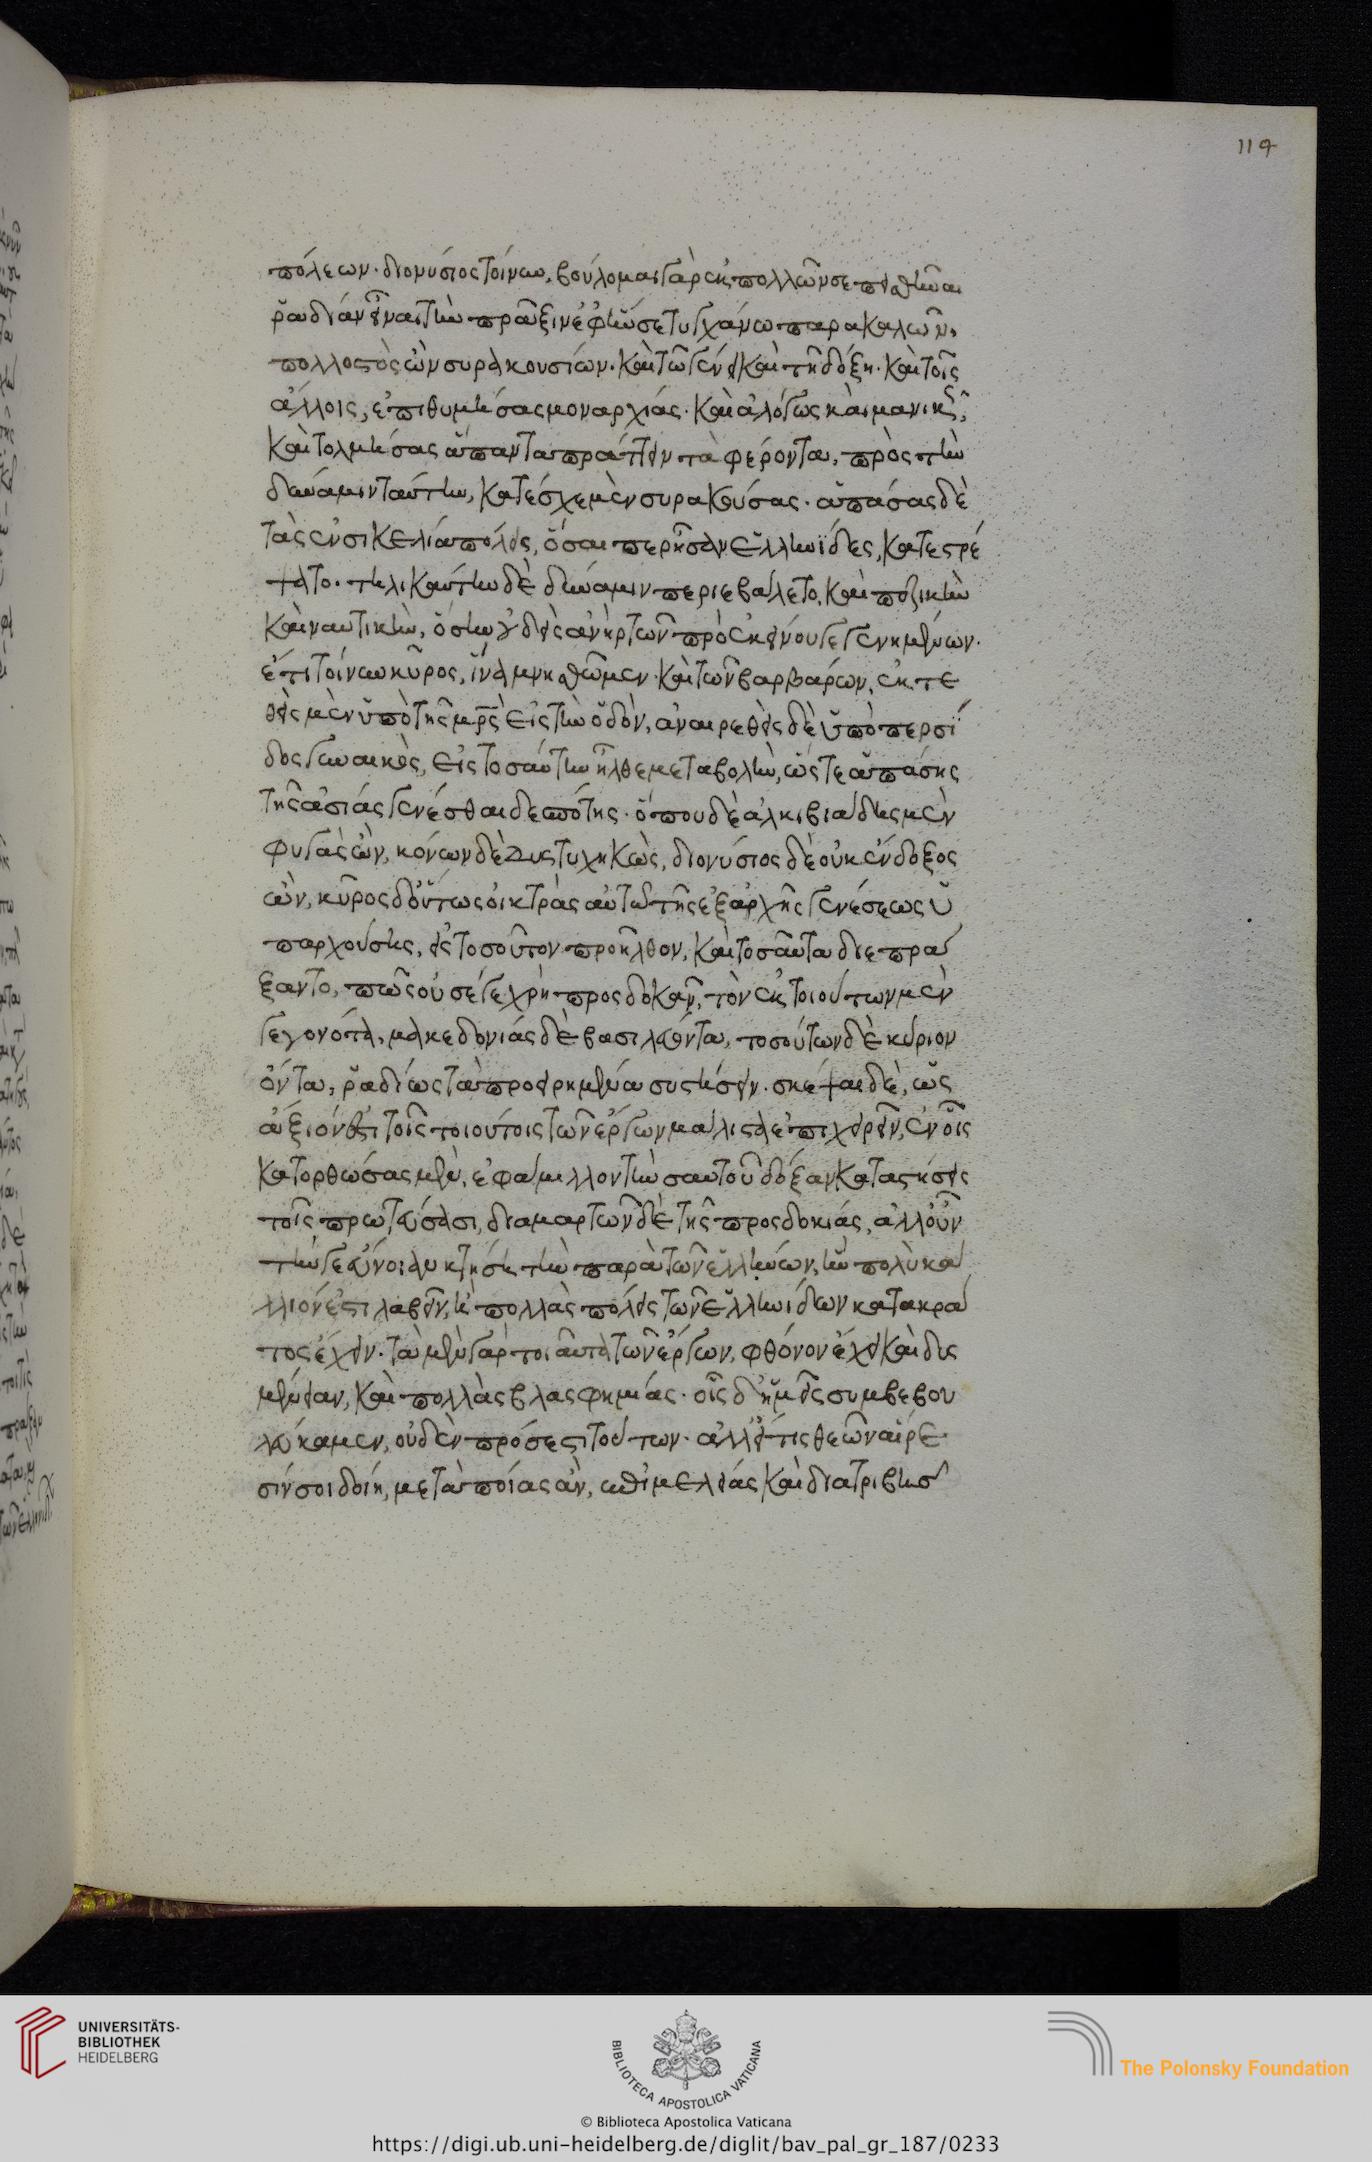 119
πόλεων· διονύσιος τοίνυν, βούλομαι γὰρ ἐκ πολλῶν σε πεισθῆναι
ῥαδίαν εἶναι τὴν πρᾶξιν ἐφ ἥν σε τυγχάνω παρακαλῶν,
πολλοστὸς ὢν συρακουσίων· καὶ τῶ γένει καὶ τῆ δόξη· καὶ τοῖς
ἄλλοις, ἐπιθυμήσας μοναρχίας· καὶ ἀλόγως καὶ μανικῶς,
καὶ τολμήσας ἅπαντα πράττειν τὰ φέροντα, πρὸς τὴν
δύναμιν ταύτην, κατέσχε μὲν συρακούσας· ἁπάσας δὲ
τὰς ἐν σικελία πόλεις, ὅσαι περ ἦσαν ἑλληνίδες, κατεστρέ
ψατο. τηλικαύτην δὲ δύναμιν περιεβάλετο, καὶ πεζικὴν
καὶ ναυτικὴν, ὅσην οὐδεὶς ἀνὴρ τῶν πρὸ ἐκείνου γεγενημένων·
ἔτι τοίνυν κῦρος, ἵνα μνησθῶμεν καὶ τῶν βαρβάρων, ἐκτε
θεὶς μὲν ὑπὸ τῆς μρς εἰς τὴν ὁδὸν, ἀναιρεθεὶς δὲ ὑπὸ περσί
δος γυναικὸς, εἰς τοσαύτην ἦλθε μεταβολὴν, ὥστε ἁπάσης
τῆς ἀσίας γενέσθαι δεσπότης· ὅπου δὲ ἀλκιβιάδης μὲν
φυγὰς ὢν, κόνων δὲ δυστυχηκὼς, διονύσιος δὲ οὐκ ἔνδοξος
ὢν, κῦρος δ οὕτως οἰκτρᾶς αὐτῶ τῆς ἐξαρχῆς γενέσεως ὑ
παρχούσης, εἰς τοσοῦτον προῆλθον, καὶ τοσαῦτα διεπρά
ξαντο, πῶς οὐ σέ γε χρὴ προσδοκᾶν, τὸν ἐκ τοιούτων μὲν
γεγονότα, μακεδονίας δὲ βασιλεύοντα, τοσούτων δὲ κύριον
ὄντα, ῥαδίως τὰ προειρημένα συστήσειν· σκέψαι δὲ, ὡς
ἄξιόν ἐστι τοῖς τοιούτοις τῶν ἔργων μάλιστα ἐπιχειρεῖν, ἐν οἷς
κατορθώσας μὲν, ἐφάμιλλον τὴν σαυτοῦ δόξαν καταστήσεις
τοῖς πρωτεύσασι, διαμαρτὼν δὲ τῆς προσδοκίας, ἀλλ οὖν
τήν γε εὔνοιαν κτήση τὴν παρὰ τῶν ἑλλήνων, ἣν πολὺ κά
λλιόν ἐστι λαβεῖν, ἢ πολλὰς πόλεις τῶν ἑλληνίδων κατακρά
τος ἔχειν· τὰ μὲν γάρ τοιαῦτα τῶν ἔργων, φθόνον ἔχει καὶ δυς
μένειαν, καὶ πολλὰς βλασφημίας· οἷς δ ἡμεῖς συμβεβου
λεύκαμεν, οὐδὲν πρόσεστι τούτων· ἀλλ εἴ τις θεῶν αἵρε
σίν σοι δοίη, μετὰ ποίας ἂν, ἐπιμελείας καὶ διατριβῆς
UNIVERSITÄTS-
BIBLIOTHEK
HEIDELBERG
BIBLIOTECA APOSTOLICA VATICANA
The Polonsky Foundation
© Biblioteca Apostolica Vaticana
https://digi.ub.uni-heidelberg.de/diglit/bav_pal_gr_187/0233